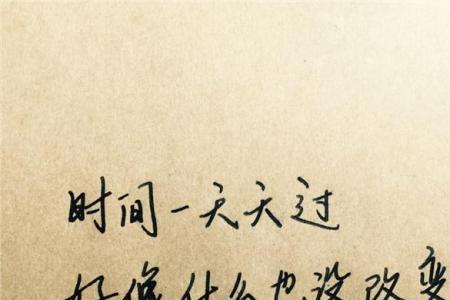 时间一天天过
好像什么也没改变